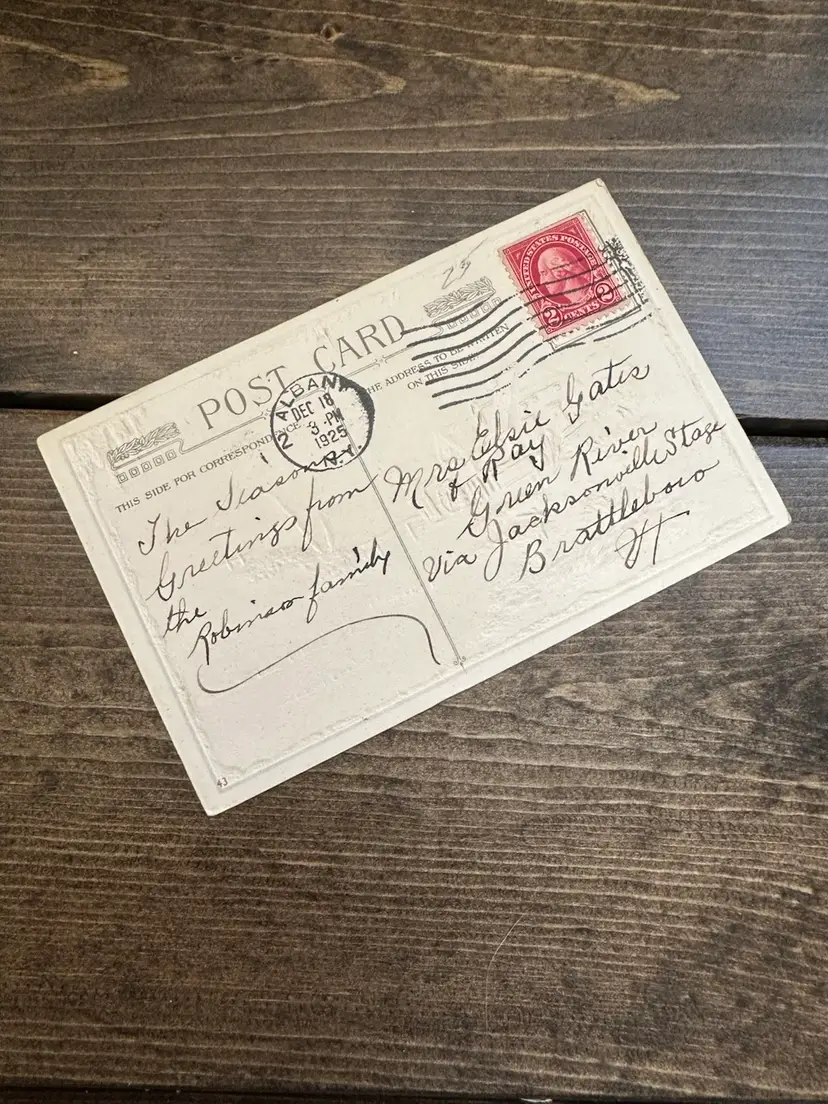 25
UNITED STATES POSTAGE
2 CENTS 2
POST CARD
THE ADDRESS TO BE WRITTEN
ON THIS SIDE
THIS SIDE FOR CORRESPONDENCE
2 ALBANY
DEC 18
3 PM
1925
N.Y.
The Seasons
Greetings from
the
Robinson family
Mrs Elsie Gates
& Ray
Green River
Via Jacksonville Stage
Brattleboro
Vt
43